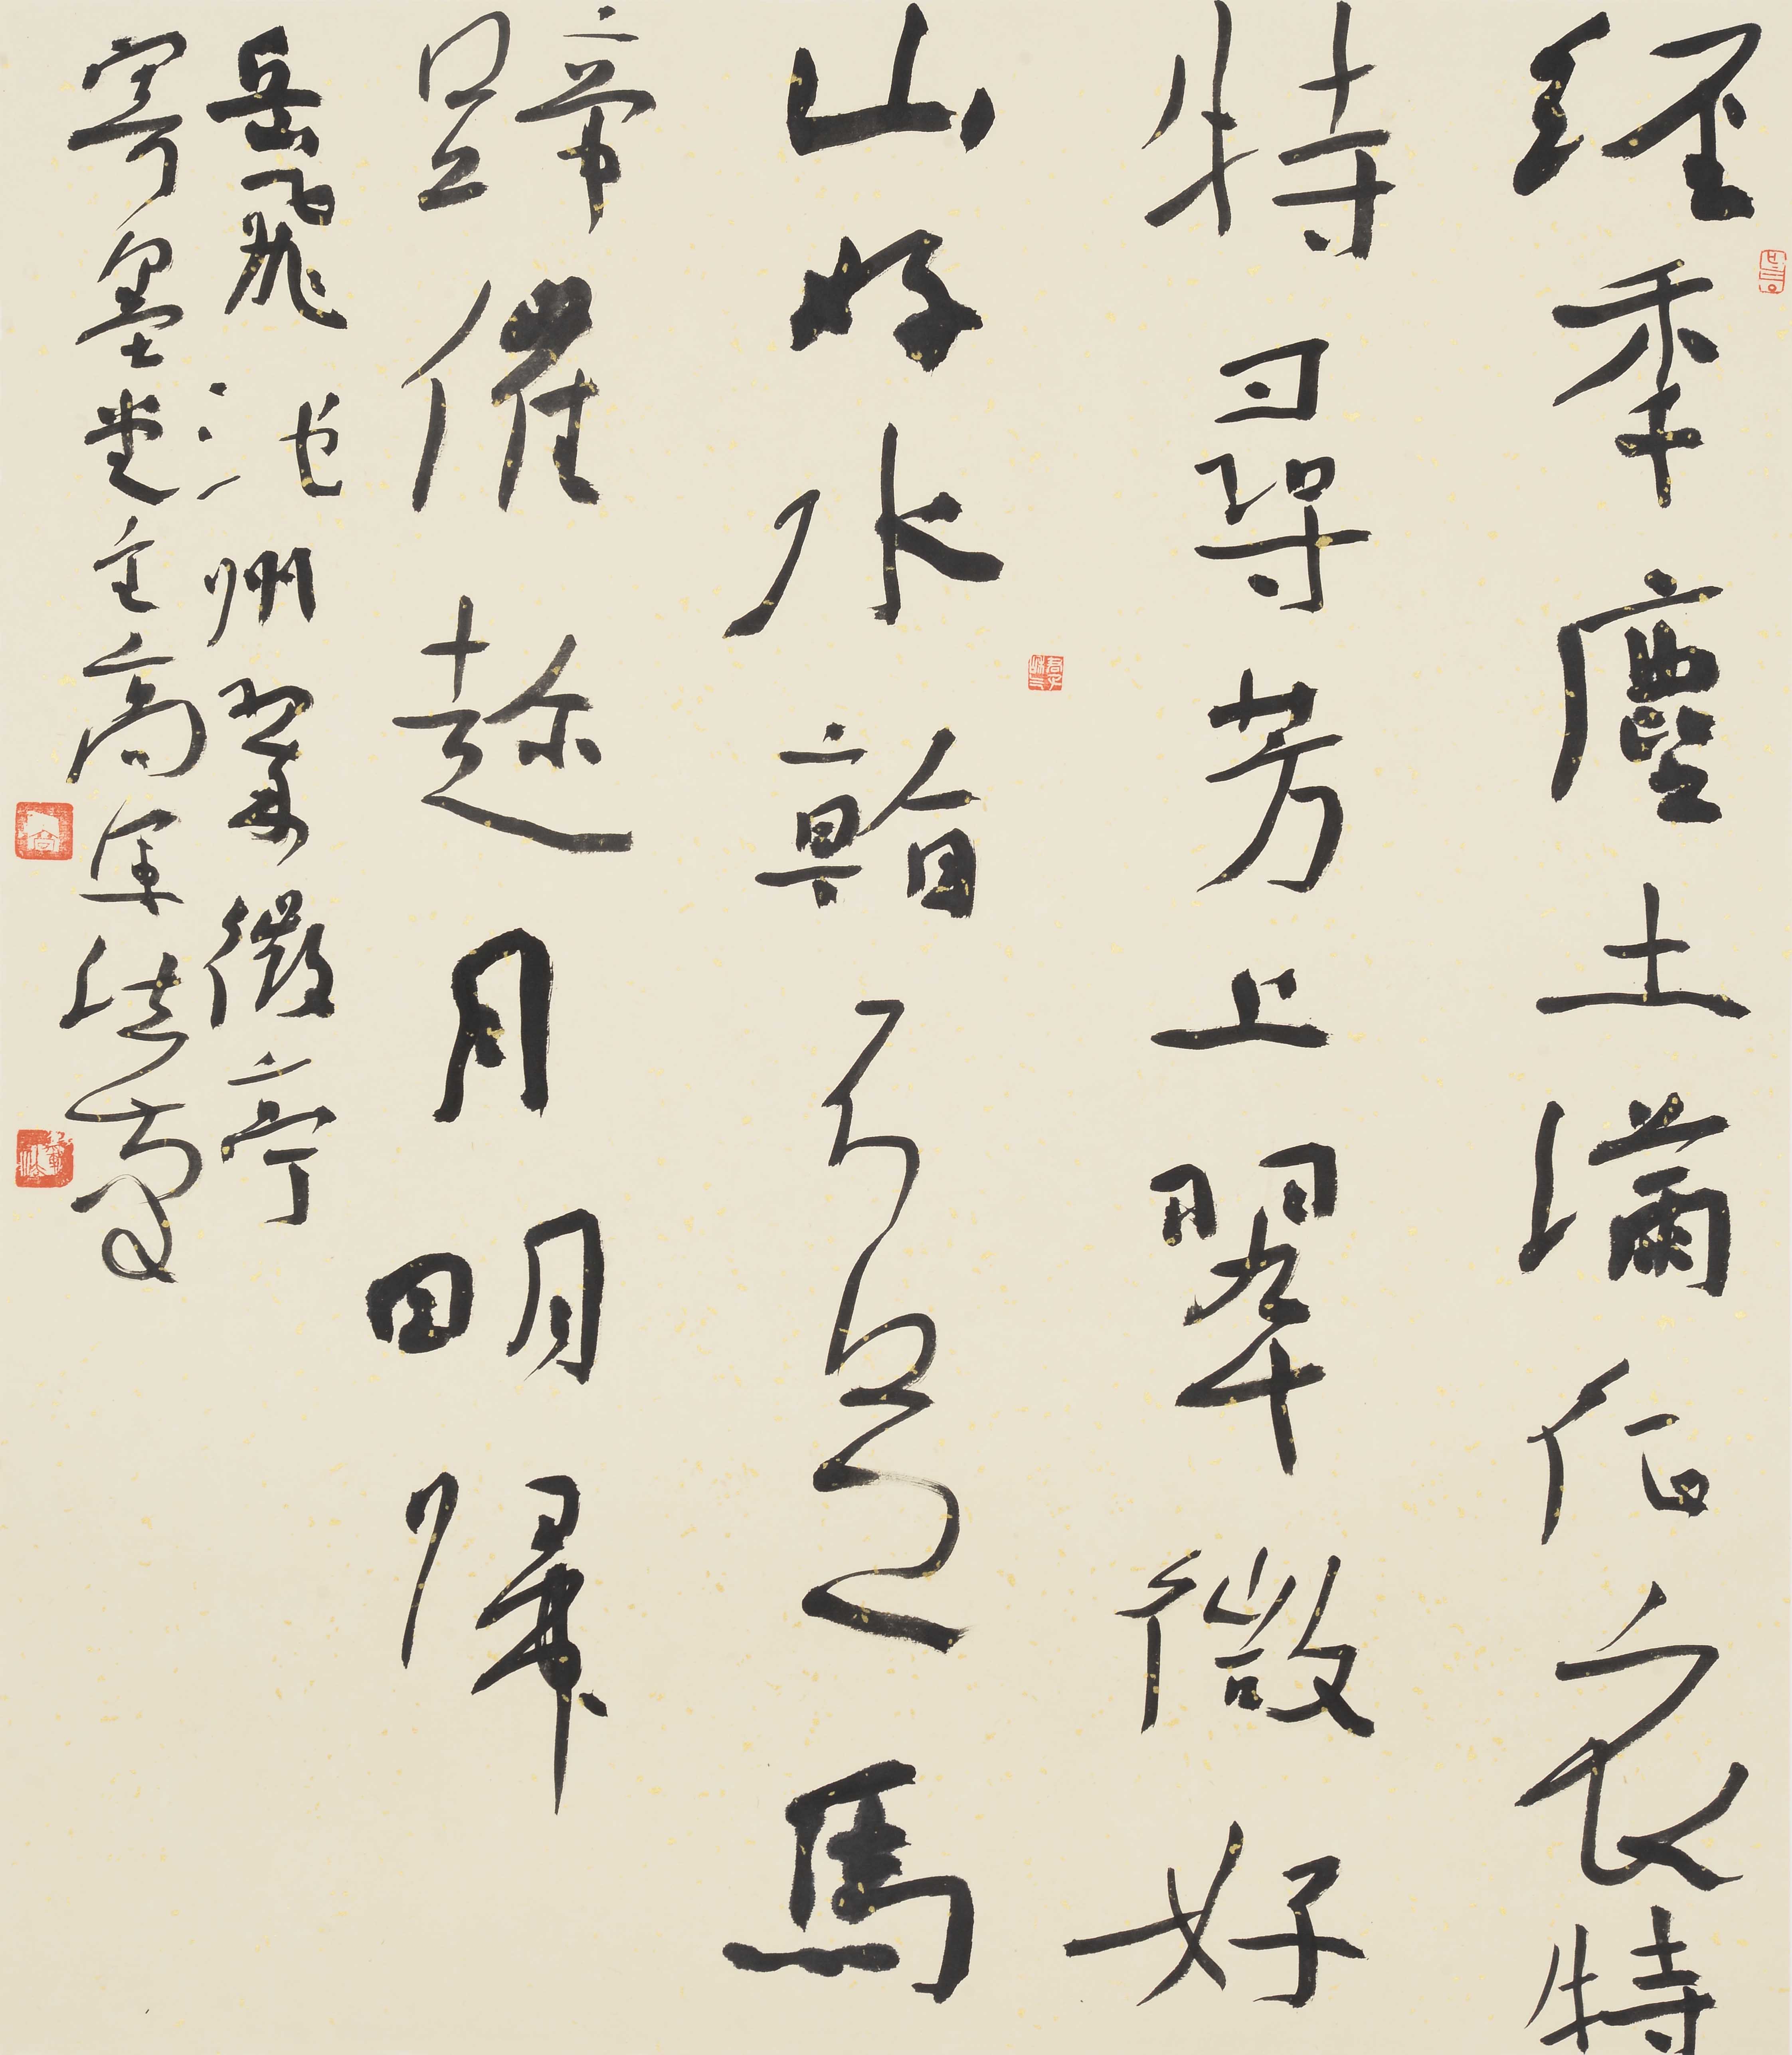 經秊塵土滿征衣特
特尋芳上翠微好
山好水看不足馬
蹄催趂月明歸
岳飛池州翠微亭
寄墨堂主高軍法書